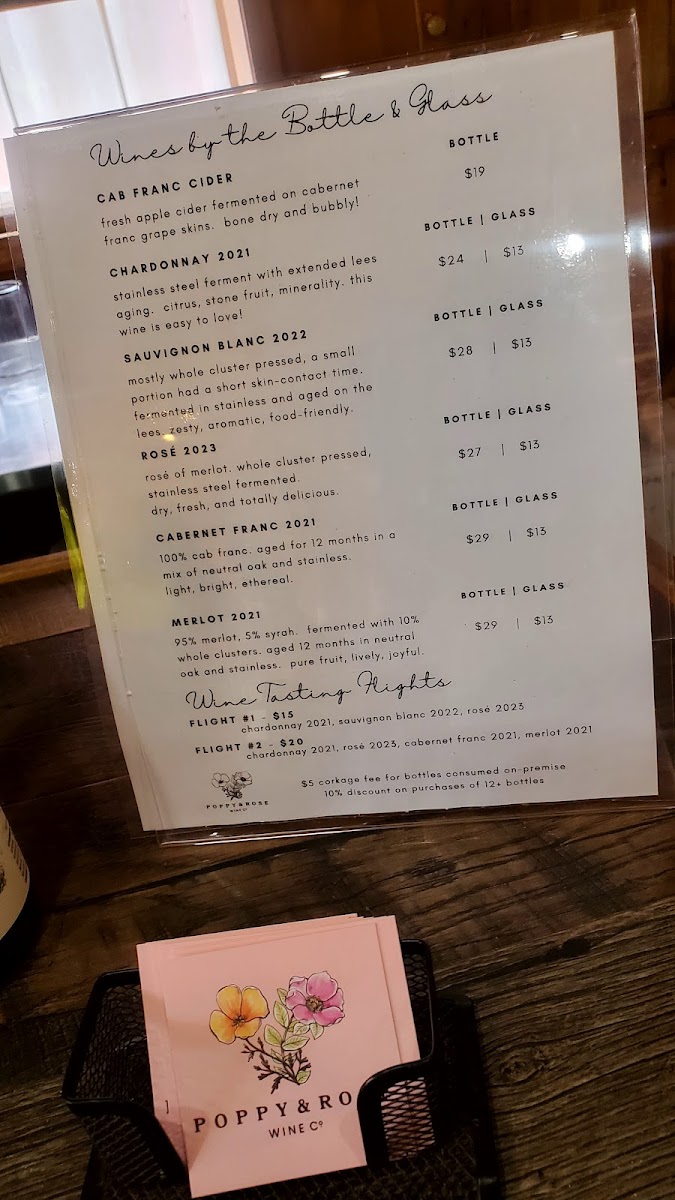 Wines by the Bottle & Glass
CAB FRANC CIDER
BOTTLE
fresh apple cider fermented on cabernet
franc grape skins. bone dry and bubbly!
$19
CHARDONNAY 2021
BOTTLE | GLASS
stainless steel ferment with extended lees
aging. citrus, stone fruit, minerality. this
wine is easy to love!
$24 | $13
SAUVIGNON BLANC 2022
BOTTLE | GLASS
mostly whole cluster pressed, a small
portion had a short skin-contact time.
fermented in stainless and aged on the
lees. zesty, aromatic, food-friendly.
$28 | $13
ROSÉ 2023
BOTTLE | GLASS
rosé of merlot. whole cluster pressed,
stainless steel fermented.
dry, fresh, and totally delicious.
$27 | $13
CABERNET FRANC 2021
BOTTLE | GLASS
100% cab franc. aged for 12 months in a
mix of neutral oak and stainless.
light, bright, ethereal.
$29 | $13
MERLOT 2021
BOTTLE | GLASS
95% merlot, 5% syrah. fermented with 10%
whole clusters. aged 12 months in neutral
oak and stainless. pure fruit, lively, joyful.
$29 | $13
Wine Tasting Flights
FLIGHT #1 - $15
chardonnay 2021, sauvignon blanc 2022, rosé 2023
FLIGHT #2 - $20
chardonnay 2021, rosé 2023, cabernet franc 2021, merlot 2021
POPPY&ROSE
WINE Cº
$5 corkage fee for bottles consumed on-premise
10% discount on purchases of 12+ bottles
POPPY & RO
WINE Cº